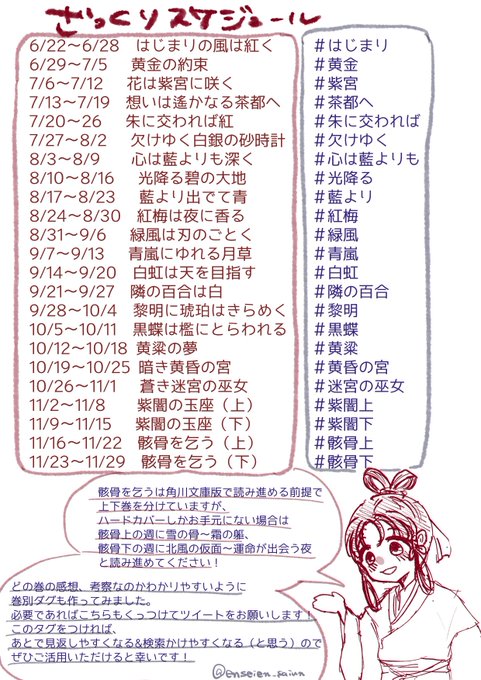 ざっくりスケジュール
6/22～6/28 はじまりの風は紅く #はじまり
6/29～7/5 黄金の約束 #黄金
7/6～7/12 花は紫宮に咲く #紫宮
7/13～7/19 想いは遙かなる茶都へ #茶都へ
7/20～26 朱に交われば紅 #朱に交われば
7/27～8/2 欠けゆく白銀の砂時計 #欠けゆく
8/3～8/9 心は藍よりも深く #心は藍よりも
8/10～8/16 光降る碧の大地 #光降る
8/17～8/23 藍より出でて青 #藍より
8/24～8/30 紅梅は夜に香る #紅梅
8/31～9/6 緑風は刃のごとく #緑風
9/7～9/13 青嵐にゆれる月草 #青嵐
9/14～9/20 白虹は天を目指す #白虹
9/21～9/27 隣の百合は白 #隣の百合
9/28～10/4 黎明に琥珀はきらめく #黎明
10/5～10/11 黒蝶は檻にとらわれる #黒蝶
10/12～10/18 黄粱の夢 #黄粱
10/19～10/25 暗き黄昏の宮 #黄昏の宮
10/26～11/1 蒼き迷宮の巫女 #迷宮の巫女
11/2～11/8 紫闇の玉座（上） #紫闇上
11/9～11/15 紫闇の玉座（下） #紫闇下
11/16～11/22 骸骨を乞う（上） #骸骨上
11/23～11/29 骸骨を乞う（下） #骸骨下
骸骨を乞うは角川文庫版で読み進める前提で
上下巻を分けていますが、
ハードカバーしかお手元にない場合は
骸骨上の週に雪の骨～霜の躯、
骸骨下の週に北風の仮面～運命が出会う夜
と読み進めてください！
どの巻の感想、考察なのかわかりやすいように
巻別タグも作ってみました。
必要であればこちらもくっつけてツイートをお願いします！
このタグをつければ、
あとで見返しやすくなる&検索かけやすくなる（と思う）ので
ぜひご活用いただけると幸いです！
@enseien_saiun